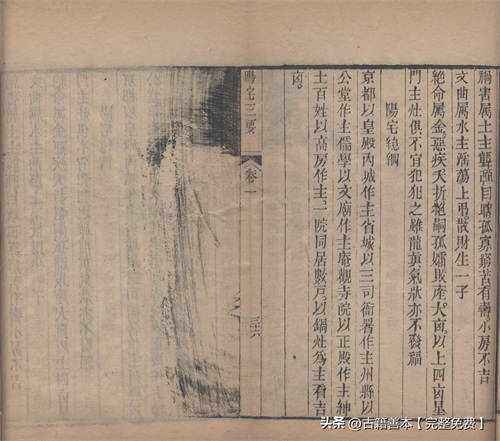 禍害属土主聾啞目瞎孤寡窮苦有壽小房不吉
文曲属水主淫蕩上弔散財生一子
絶命属金惡疾夭折絶嗣孤孀敗産大凶以上四凶星
門主灶俱不宜犯犯之雖龍真氣壯亦不發福
陽宅緫綱
京都以皇殿内城作主省城以三司衙署作主州縣以
公堂作主儒學以文廟作主庵觀寺院以正殿作主紳
士百姓以高房作主一院同居數戸以鍋灶為主看吉
凶。
陽宅三要 卷一 三六
头条 @古籍善本【完整免费】